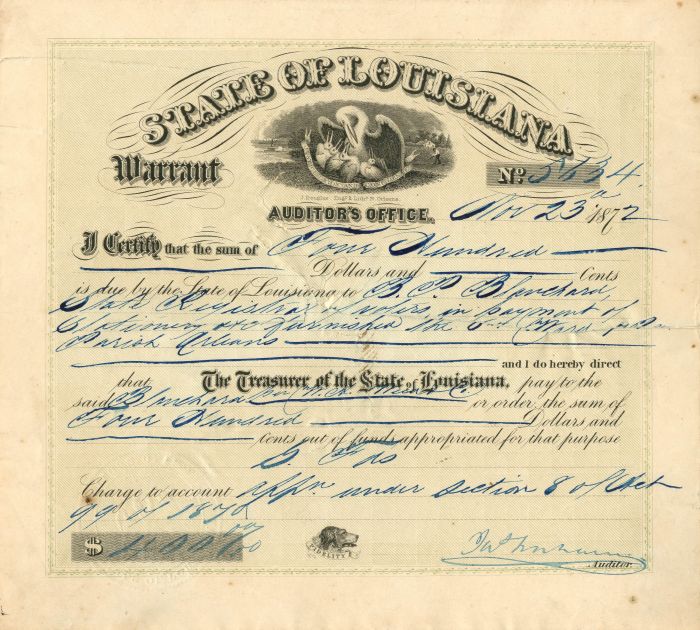 STATE OF LOUISIANA
Warrant
No. 3634.
J. Douglas Engr. & Lithr. N. Orleans.
AUDITOR'S OFFICE,
Nov 23rd 1872
I Certify that the sum of Four Hundred
Dollars and Cents
is due by the State of Louisiana to B. P. Blanchard,
State Registrar of voters in payment of
Stationery &c furnished the 6th Ward
Parish Orleans
and I do hereby direct
that The Treasurer of the State of Louisiana, pay to the
said Blanchard or order, the sum of
Four Hundred Dollars and
cents out of funds appropriated for that purpose
Charge to account appr. under section 8 of Act
99 of 1870
$ 400 00/100
FIDELITY
Auditor.